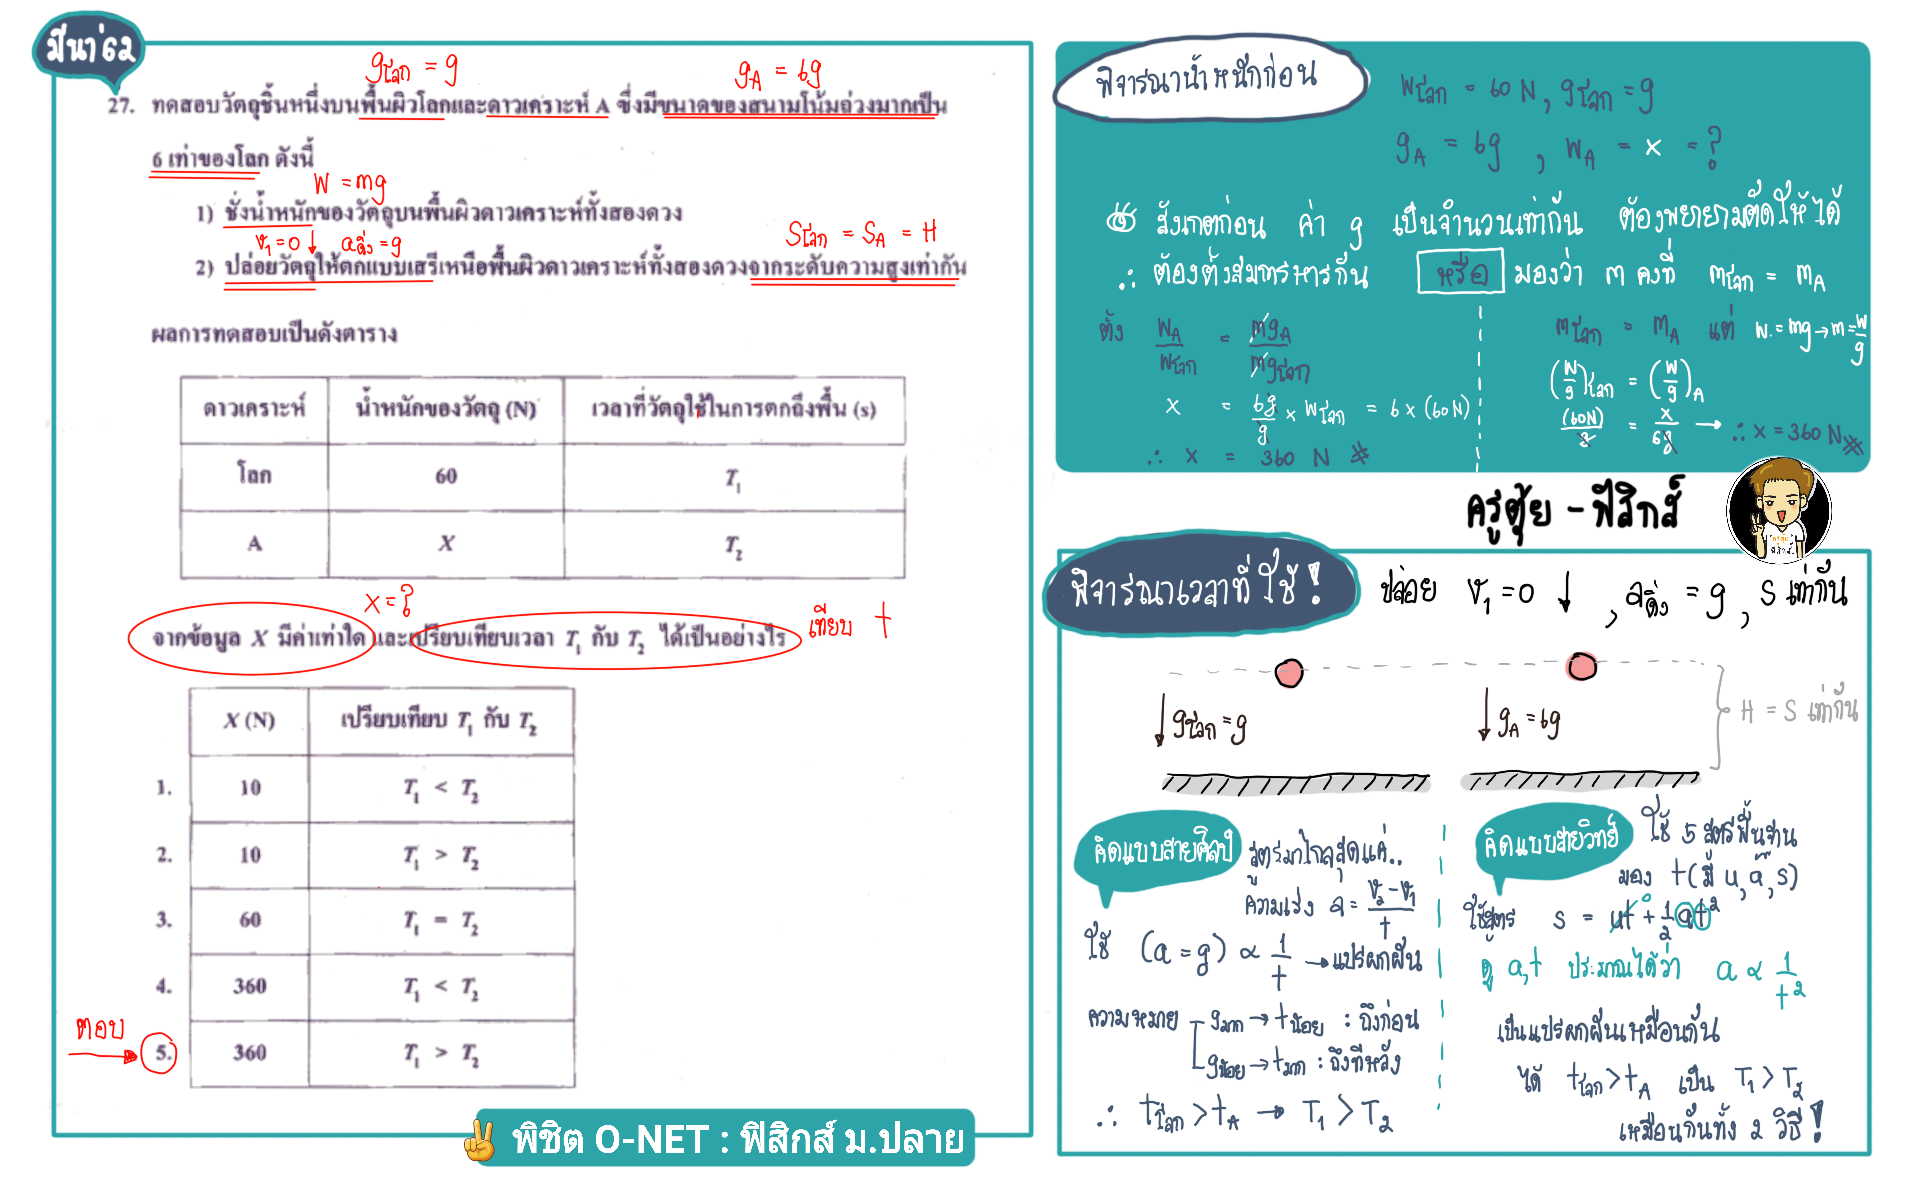 มีนา'62
gโลก = g
gA = 6g
27. ทดสอบวัตถุชิ้นหนึ่งบนพื้นผิวโลกและดาวเคราะห์ A ซึ่งมีขนาดของสนามโน้มถ่วงมากเป็น
6 เท่าของโลก ดังนี้
W = mg
1) ชั่งน้ำหนักของวัตถุบนพื้นผิวดาวเคราะห์ทั้งสองดวง
v₁=0↓ aดิ่ง=g
Sโลก = SA = H
2) ปล่อยวัตถุให้ตกแบบเสรีเหนือพื้นผิวดาวเคราะห์ทั้งสองดวงจากระดับความสูงเท่ากัน
ผลการทดสอบเป็นดังตาราง
ดาวเคราะห์ น้ำหนักของวัตถุ (N) เวลาที่วัตถุใช้ในการตกถึงพื้น (s)
โลก 60 T₁
A X T₂
X=?
จากข้อมูล X มีค่าเท่าใด และเปรียบเทียบเวลา T₁ กับ T₂ ได้เป็นอย่างไร
เทียบ t
X (N) เปรียบเทียบ T₁ กับ T₂
1. 10 T₁ < T₂
2. 10 T₁ > T₂
3. 60 T₁ = T₂
4. 360 T₁ < T₂
ตอบ
5. 360 T₁ > T₂
✌ พิชิต O-NET : ฟิสิกส์ ม.ปลาย
พิจารณาน้ำหนักก่อน
Wโลก = 60 N, gโลก = g
gA = 6g , WA = x = ?
สังเกตก่อน ค่า g เป็นจำนวนเท่ากัน ต้องพยายามตัดให้ได้
∴ ต้องตั้งสมการหารกัน หรือ มองว่า m คงที่ mโลก = mA
ตั้ง WA/Wโลก = mgA/mgโลก
x = 6g/g × Wโลก = 6 × (60 N)
∴ x = 360 N #
mโลก = mA แต่ W = mg → m = W/g
(W/g)โลก = (W/g)A
(60N)/g = x/6g → ∴ x = 360 N #
ครูตุ้ย - ฟิสิกส์
พิจารณาเวลาที่ใช้!
ปล่อย v₁ = 0 ↓ , aดิ่ง = g , S เท่ากัน
↓ gโลก = g
↓ gA = 6g
H = S เท่ากัน
คิดแบบสายศิลป์
สูตรมาไกลสุดแค่..
ความเร่ง a = v₂-v₁/t
ใช้ (a = g) ∝ 1/t → แปรผกผัน
ความหมาย gมาก → tน้อย : ถึงก่อน
gน้อย → tมาก : ถึงทีหลัง
∴ tโลก > tA → T₁ > T₂
คิดแบบสายวิทย์
ใช้ 5 สูตรพื้นฐาน
มอง t (มี u, a, s)
ใช้สูตร s = ut⁰ + 1/2 at²
ดู a,t ประมาณได้ว่า a ∝ 1/t²
เป็นแปรผกผันเหมือนกัน
ได้ tโลก > tA เป็น T₁ > T₂
เหมือนกันทั้ง 2 วิธี!